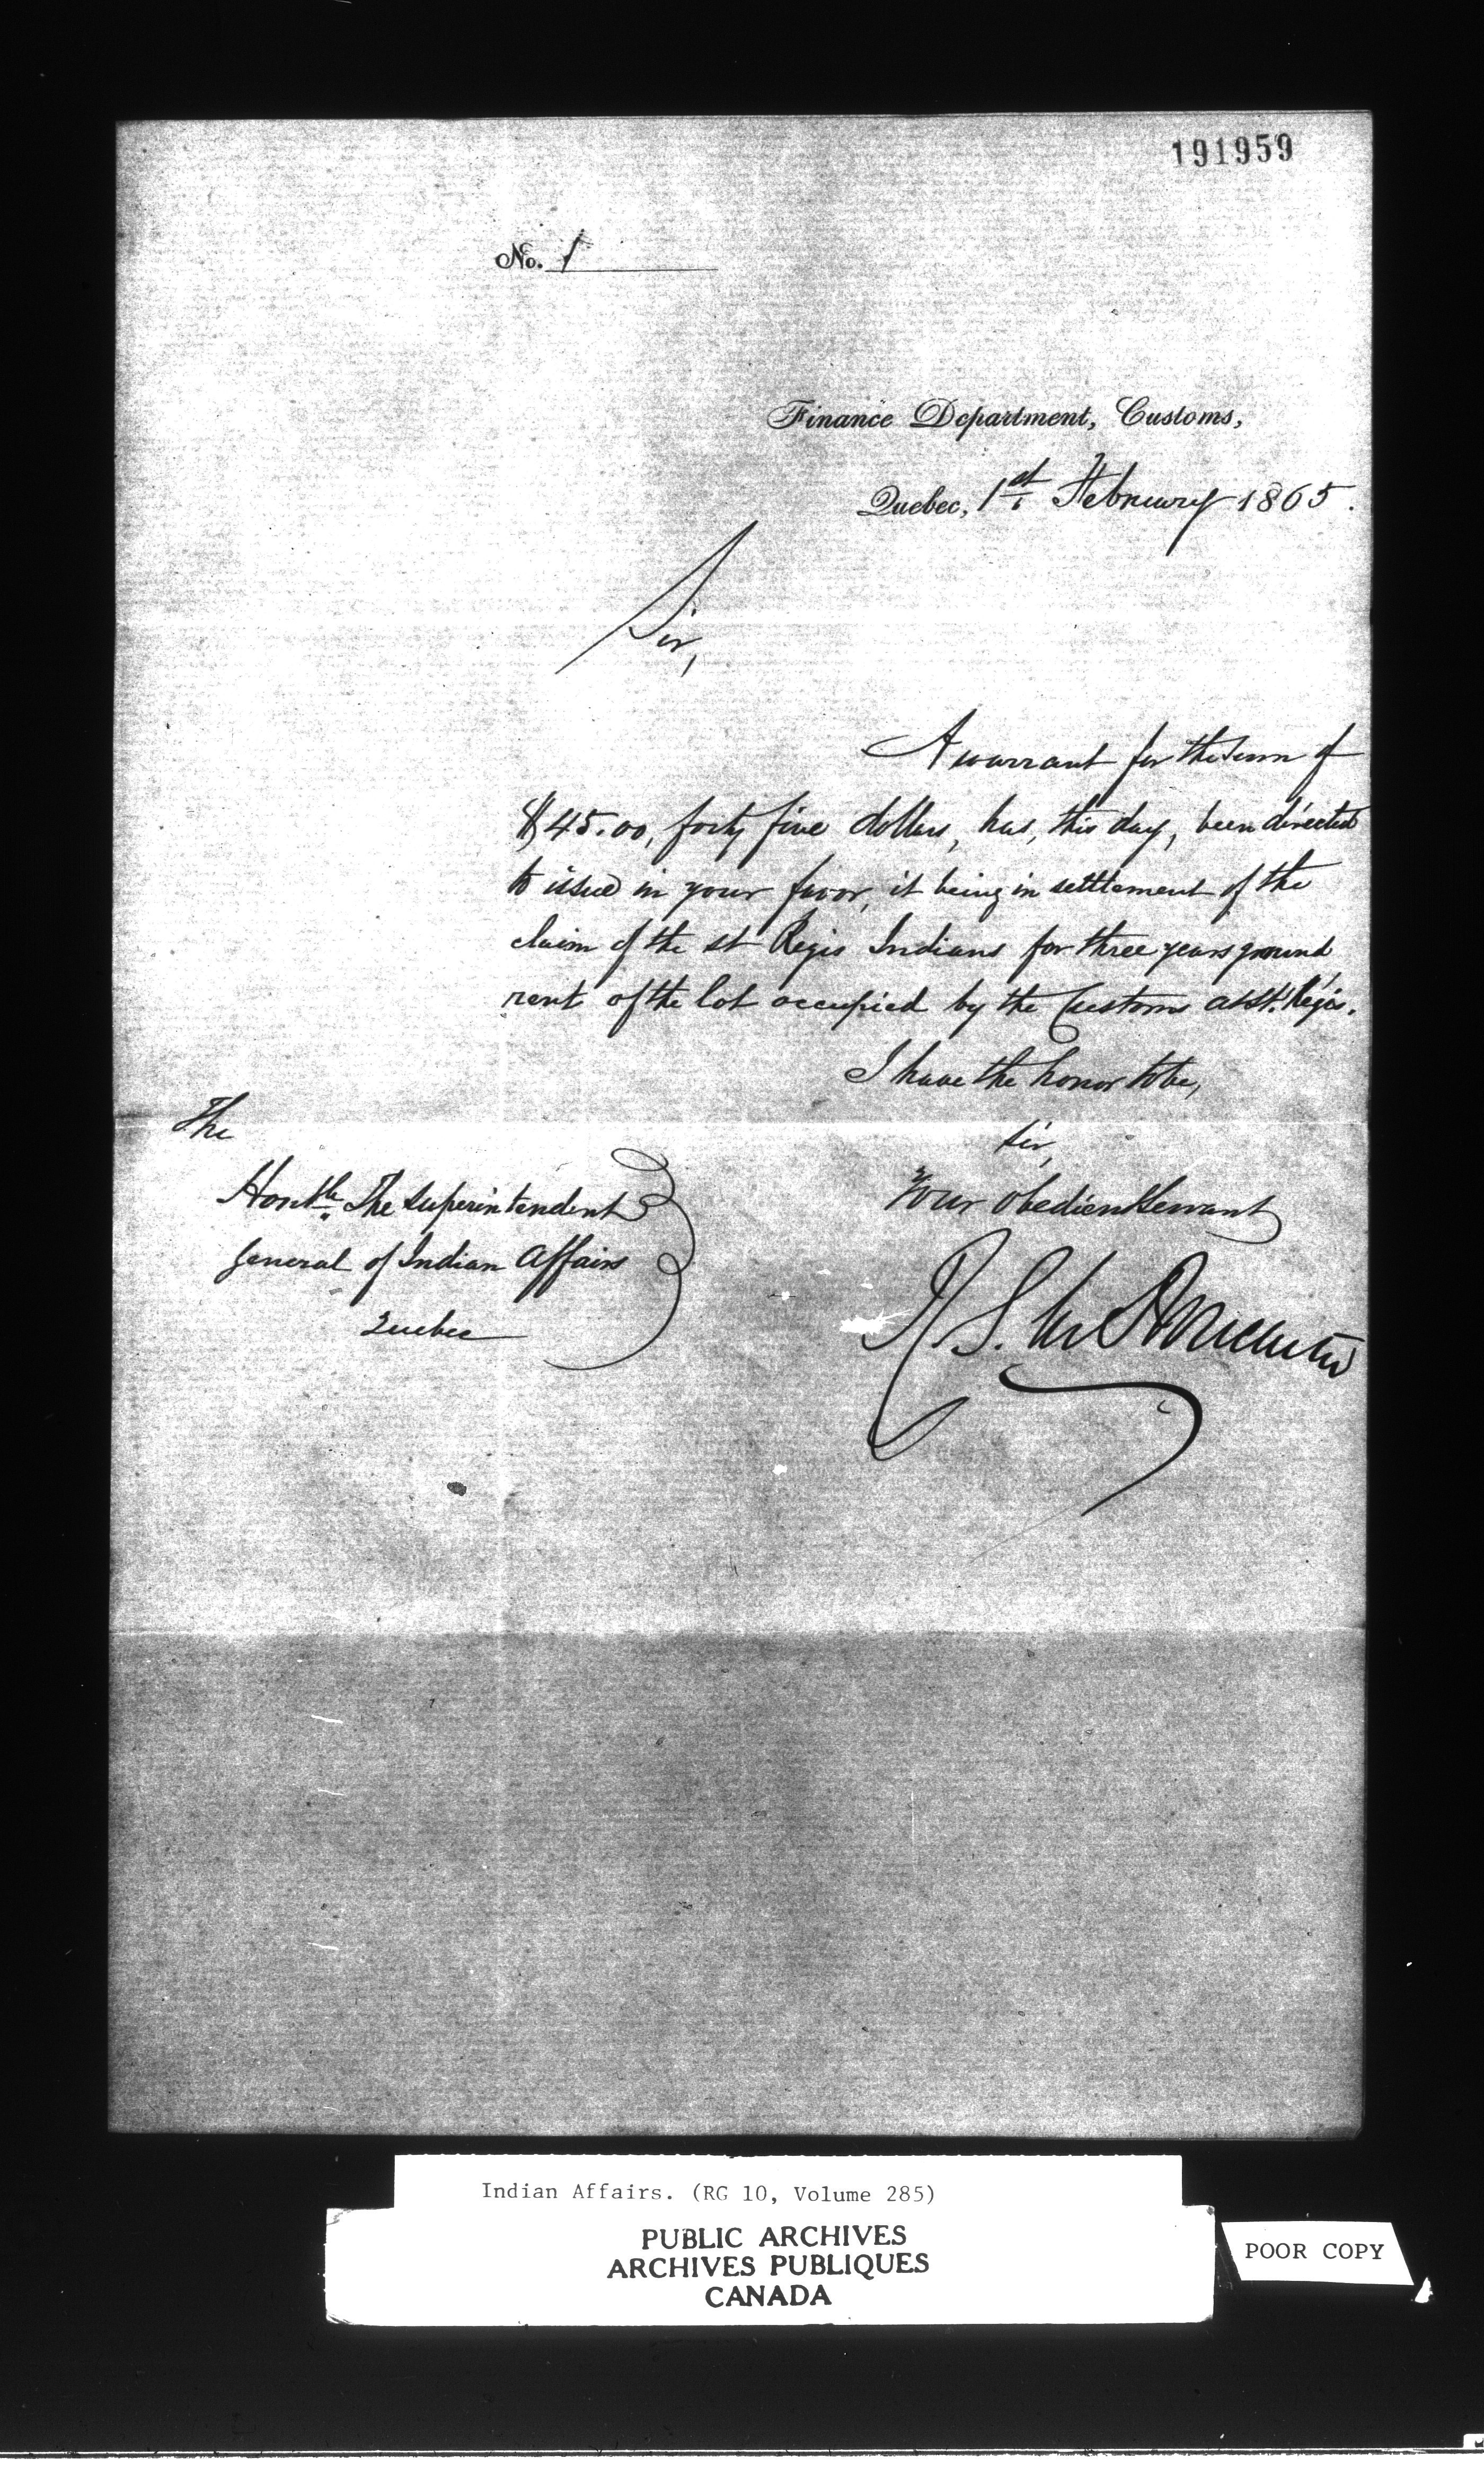 191959
No. 1
Finance Department, Customs,
Quebec, 1st February 1865.
Sir,
A warrant for the sum of
$45.00, forty five dollars, has, this day, been directed
to issue in your favor, it being in settlement of the
claim of the St Regis Indians for three years ground
rent of the lot occupied by the Customs at St. Régis.
I have the honor to be,
Sir,
Your obedient servant
R. S. M.
The
Honble. The Superintendent
General of Indian Affairs
Quebec
Indian Affairs. (RG 10, Volume 285)
PUBLIC ARCHIVES
ARCHIVES PUBLIQUES
CANADA
POOR COPY